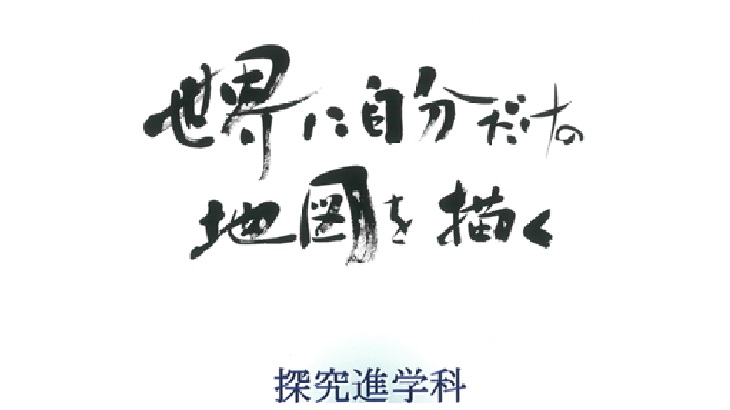 世界に自分だけの
地図を描く
探究進学科